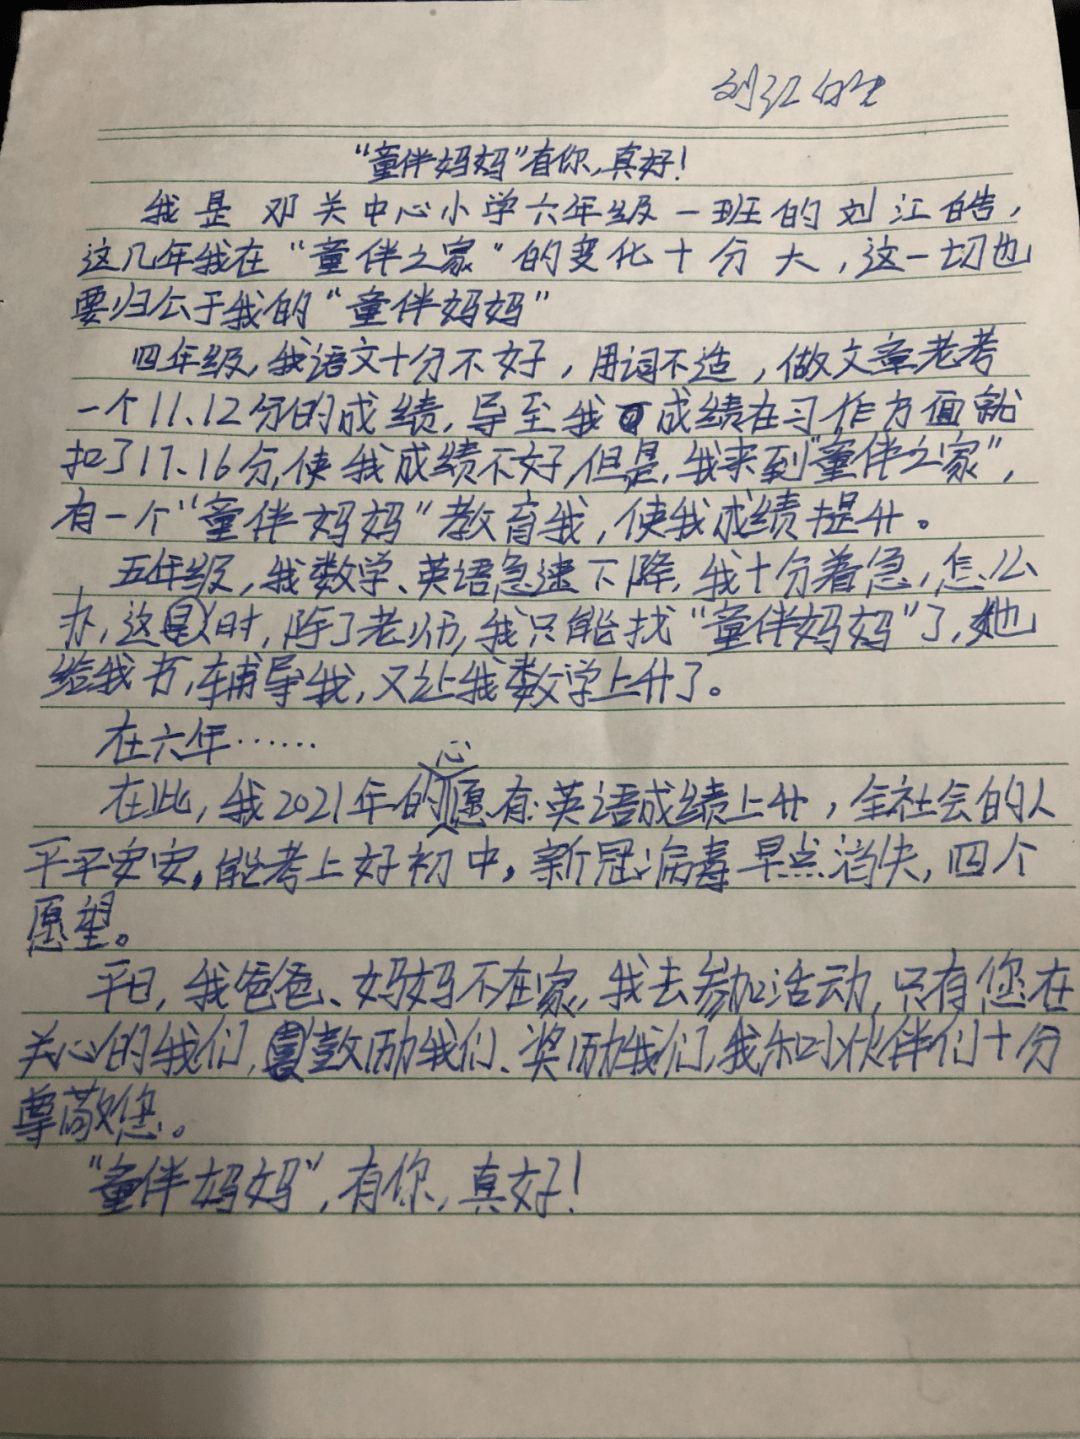 刘江皓
“童伴妈妈”有你,真好!
我是邓关中心小学六年级一班的刘江皓,
这几年我在“童伴之家”的变化十分大,这一切也
要归公于我的“童伴妈妈”
四年级,我语文十分不好,用词不造,做文章老考
一个11、12分的成绩,导至我成绩在习作方面就
扣了17、16分,使我成绩不好,但是,我来到“童伴之家”,
有一个“童伴妈妈”教育我,使我成绩提升。
五年级,我数学、英语急速下降,我十分着急,怎么
办,这时,除了老师,我只能找“童伴妈妈”了,她
给我书,辅导我,又让我数学上升了。
在六年……
在此,我2021年的心愿有:英语成绩上升,全社会的人
平平安安,能考上好初中,新冠病毒早点消失,四个
愿望。
平日,我爸爸、妈妈不在家,我去参加活动,只有您在
关心的我们,鼓励我们、奖励我们,我和小伙伴们十分
尊敬您。
“童伴妈妈”,有你,真好!